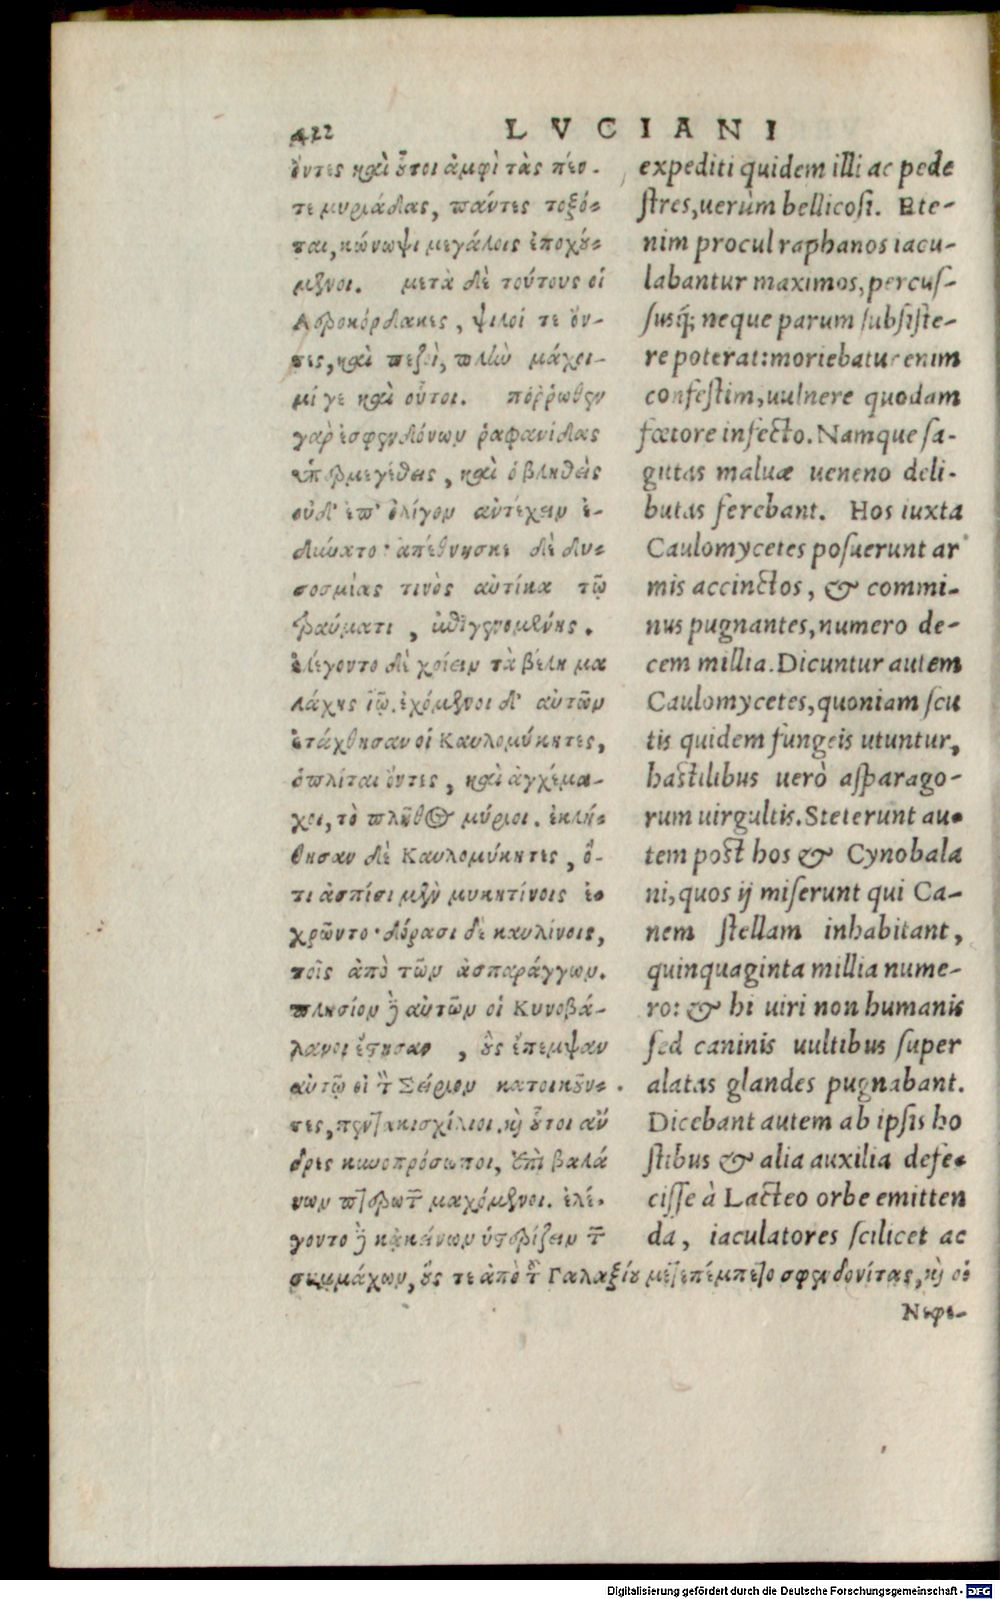 422 LVCIANI
ὄντες καὶ οὗτοι ἀμφὶ τὰς πέν-
τε μυριάδας, πάντες τοξό-
ται, κώνωψι μεγάλοις ἐποχού-
μενοι. μετὰ δὲ τούτους οἱ
Ἀεροκόρδακες, ψιλοί τε ὄν-
τες, καὶ πεζοὶ, πλὴν μάχι-
μοί γε καὶ οὗτοι. πόῤῥωθεν
γὰρ ἐσφενδόνων ῥαφανίδας
ὑπερμεγέθεις, καὶ ὁ βληθεὶς
οὐδ' ἐπ' ὀλίγον ἀντέχειν ἐ-
δύνατο· ἀπέθνησκε δὲ δυ-
σοσμίας τινὸς αὐτίκα τῷ
τραύματι, ἐγγενομένης.
ἐλέγοντο δὲ χρίειν τὰ βέλη μα
λάχης ἰῷ. ἐχόμενοι δ' αὐτῶν
ἐτάχθησαν οἱ Καυλομύκητες,
ὁπλίται ὄντες, καὶ ἀγχέμα-
χοι, τὸ πλῆθος μύριοι. ἐκλή-
θησαν δὲ Καυλομύκητες, ὅ-
τι ἀσπίσι μὲν μυκητίνοις ἐ-
χρῶντο· δόρασι δὲ καυλίνοις,
τοῖς ἀπὸ τῶν ἀσπαράγγων.
πλησίον δὲ αὐτῶν οἱ Κυνοβά-
λανοι ἔστησαν, οὓς ἔπεμψαν
αὐτῷ οἱ τὸν Σείριον κατοικοῦν-
τες, πεντακισχίλιοι. καὶ οὗτοι ἄν
δρες κυνοπρόσωποι, ἐπὶ βαλά
νων πτερωτῶν μαχόμενοι. ἐλέ-
γοντο δὲ κἀκείνων ὑστερίζειν τῶν
συμμάχων, οὕς τε ἀπὸ τοῦ Γαλαξίου μετεπέμπετο σφενδονίτας, καὶ οἱ
expediti quidem illi ac pede
stres, uerùm bellicosi. Ete-
nim procul raphanos iacu-
labantur maximos, percus-
susq́; neque parum subsiste-
re poterat: moriebatur enim
confestim, uulnere quodam
fœtore infecto. Namque sa-
gittas maluæ ueneno deli-
butas ferebant. Hos iuxta
Caulomycetes posuerunt ar
mis accinctos, & commi-
nus pugnantes, numero de-
cem millia. Dicuntur autem
Caulomycetes, quoniam scu
tis quidem fungeis utuntur,
hastilibus uerò asparago-
rum uirgultis. Steterunt au-
tem post hos & Cynobala
ni, quos ij miserunt qui Ca-
nem stellam inhabitant,
quinquaginta millia nume-
ro: & hi uiri non humanis
sed caninis uultibus super
alatas glandes pugnabant.
Dicebant autem ab ipsis ho
stibus & alia auxilia defe-
cisse à Lacteo orbe emitten
da, iaculatores scilicet ac
Νεφε-
Digitalisierung gefördert durch die Deutsche Forschungsgemeinschaft - DFG